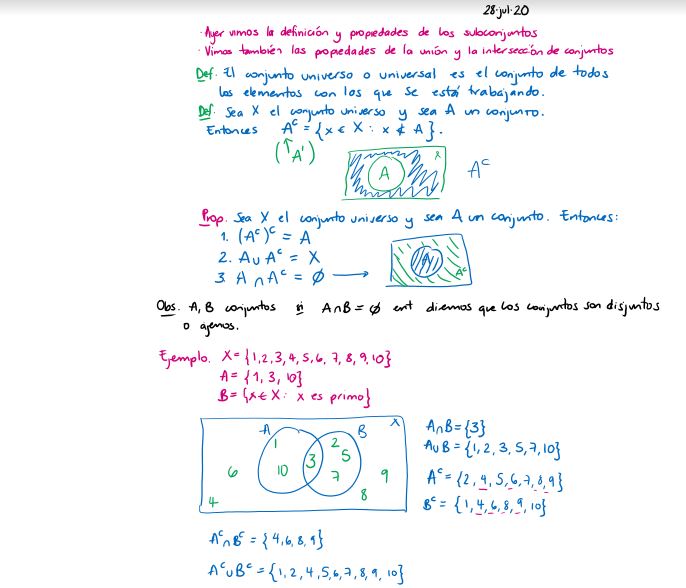 28·jul·20
· Ayer vimos la definición y propiedades de los subconjuntos
· Vimos también las propiedades de la unión y la intersección de conjuntos
Def. El conjunto universo o universal es el conjunto de todos
los elementos con los que se está trabajando.
Def. Sea X el conjunto universo y sea A un conjunto.
Entonces A^c = {x ∈ X : x ∉ A}.
(↑ A')
A
X
A^c
Prop. Sea X el conjunto universo y sea A un conjunto. Entonces:
1. (A^c)^c = A
2. A ∪ A^c = X
3. A ∩ A^c = ∅ →
A
A^c
Obs. A, B conjuntos si A∩B = ∅ ent diremos que los conjuntos son disjuntos
o ajenos.
Ejemplo. X = {1,2,3,4,5,6,7,8,9,10}
A = {1, 3, 10}
B = {x ∈ X : x es primo}
A B X
1 2
3 5
6 10 7 9
4 8
A∩B = {3}
A∪B = {1, 2, 3, 5, 7, 10}
A^c = {2, 4, 5, 6, 7, 8, 9}
B^c = {1, 4, 6, 8, 9, 10}
A^c ∩ B^c = {4, 6, 8, 9}
A^c ∪ B^c = {1, 2, 4, 5, 6, 7, 8, 9, 10}